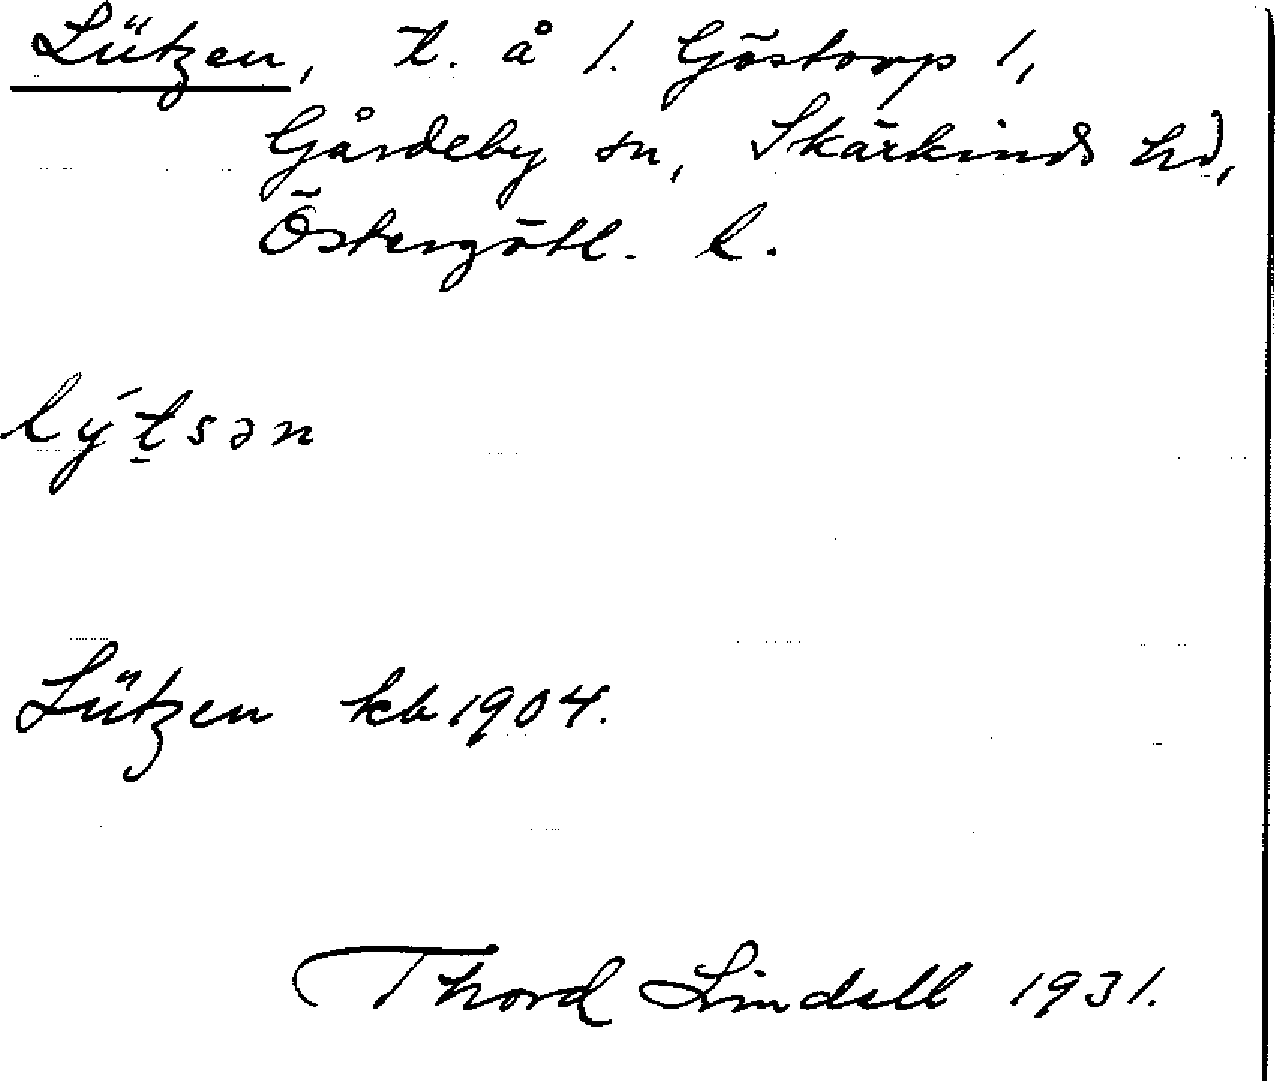 Lützen, t. å 1. Göstorp 1,
Gårdeby sn, Skärkinds hd,
Östergötl. l.
lýt̲sən
Lützen kb 1904.
Thord Lindell 1931.